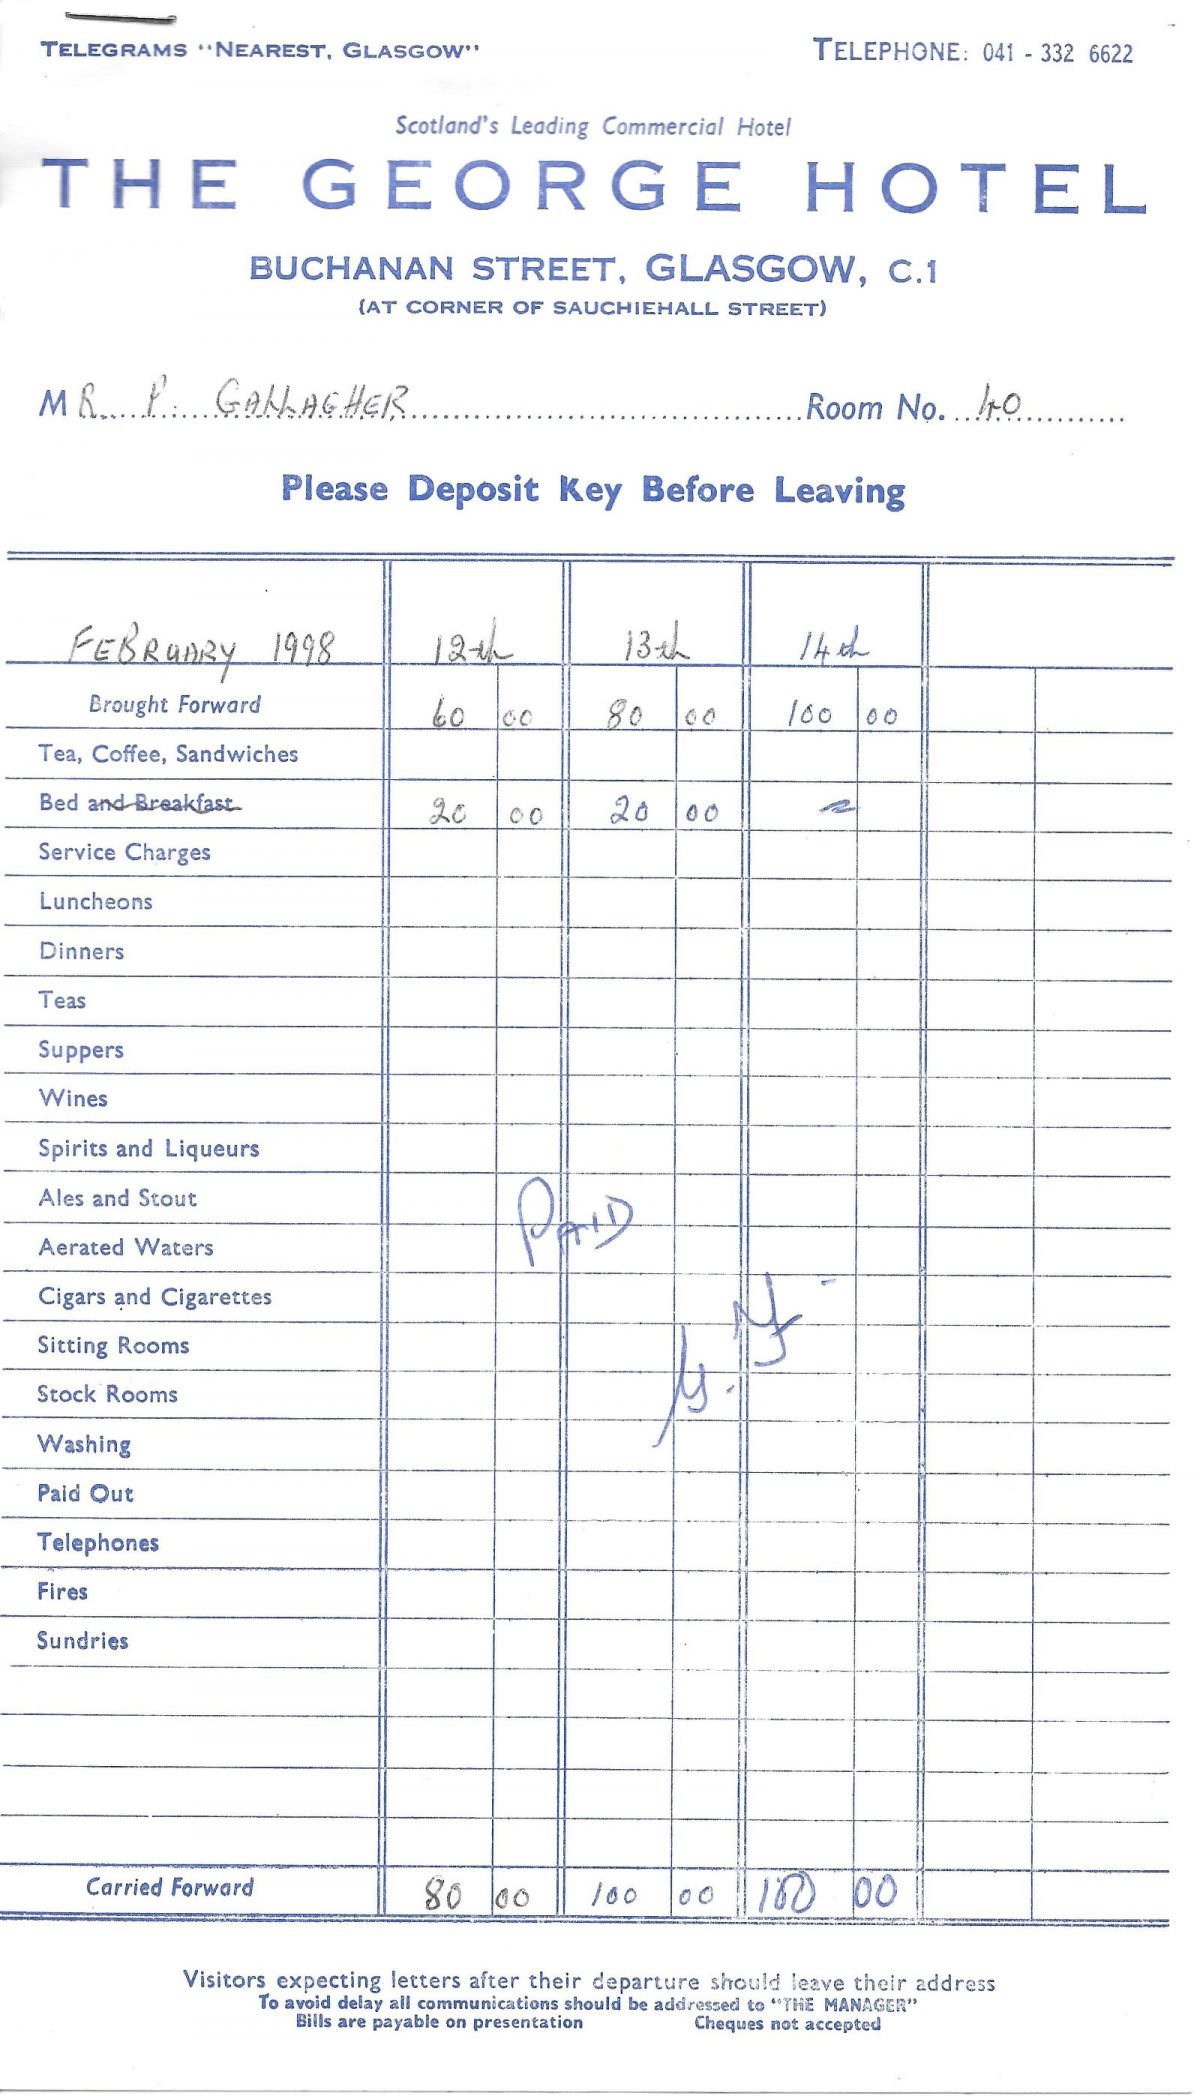 TELEGRAMS "NEAREST, GLASGOW" TELEPHONE: 041 - 332 6622
Scotland's Leading Commercial Hotel
THE GEORGE HOTEL
BUCHANAN STREET, GLASGOW, C.1
(AT CORNER OF SAUCHIEHALL STREET)
MR. P. GALLAGHER Room No. 40
Please Deposit Key Before Leaving
FEBRUARY 1998 12th 13th 14th
Brought Forward 60 00 80 00 100 00
Tea, Coffee, Sandwiches
Bed and Breakfast 20 00 20 00
Service Charges
Luncheons
Dinners
Teas
Suppers
Wines
Spirits and Liqueurs
Ales and Stout
PAID
Aerated Waters
Cigars and Cigarettes
Sitting Rooms
Stock Rooms
Washing
Paid Out
Telephones
Fires
Sundries
Carried Forward 80 00 100 00 100 00
Visitors expecting letters after their departure should leave their address
To avoid delay all communications should be addressed to "THE MANAGER"
Bills are payable on presentation Cheques not accepted